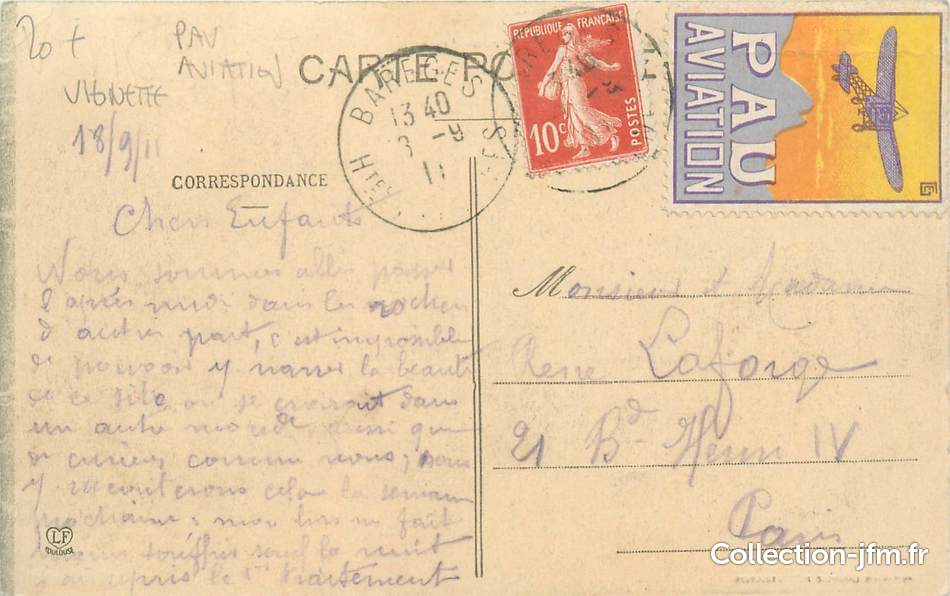 20 +
PAU
AVIATION
VIGNETTE
18/9/11
CARTE PO
BAREGES
13 40
3 -9
11
REPUBLIQUE FRANÇAISE
10c
POSTES
PAU
AVIATION
CORRESPONDANCE
Chers Enfants
Nous sommes allés passer
l'après midi dans les rochers
d'autre part, c'est impossible
de pouvoir y narrer la beauté
de ce site, on se croirait dans
un autre monde, aussi que
de curieux comme nous, nous
y raconterons cela la semaine
prochaine,
souffrir la nuit
le 1er traitement
Monsieur et Madame
René Laforge
21 Bd Henri IV
Paris
LF
TOULOUSE
Collection-jfm.fr